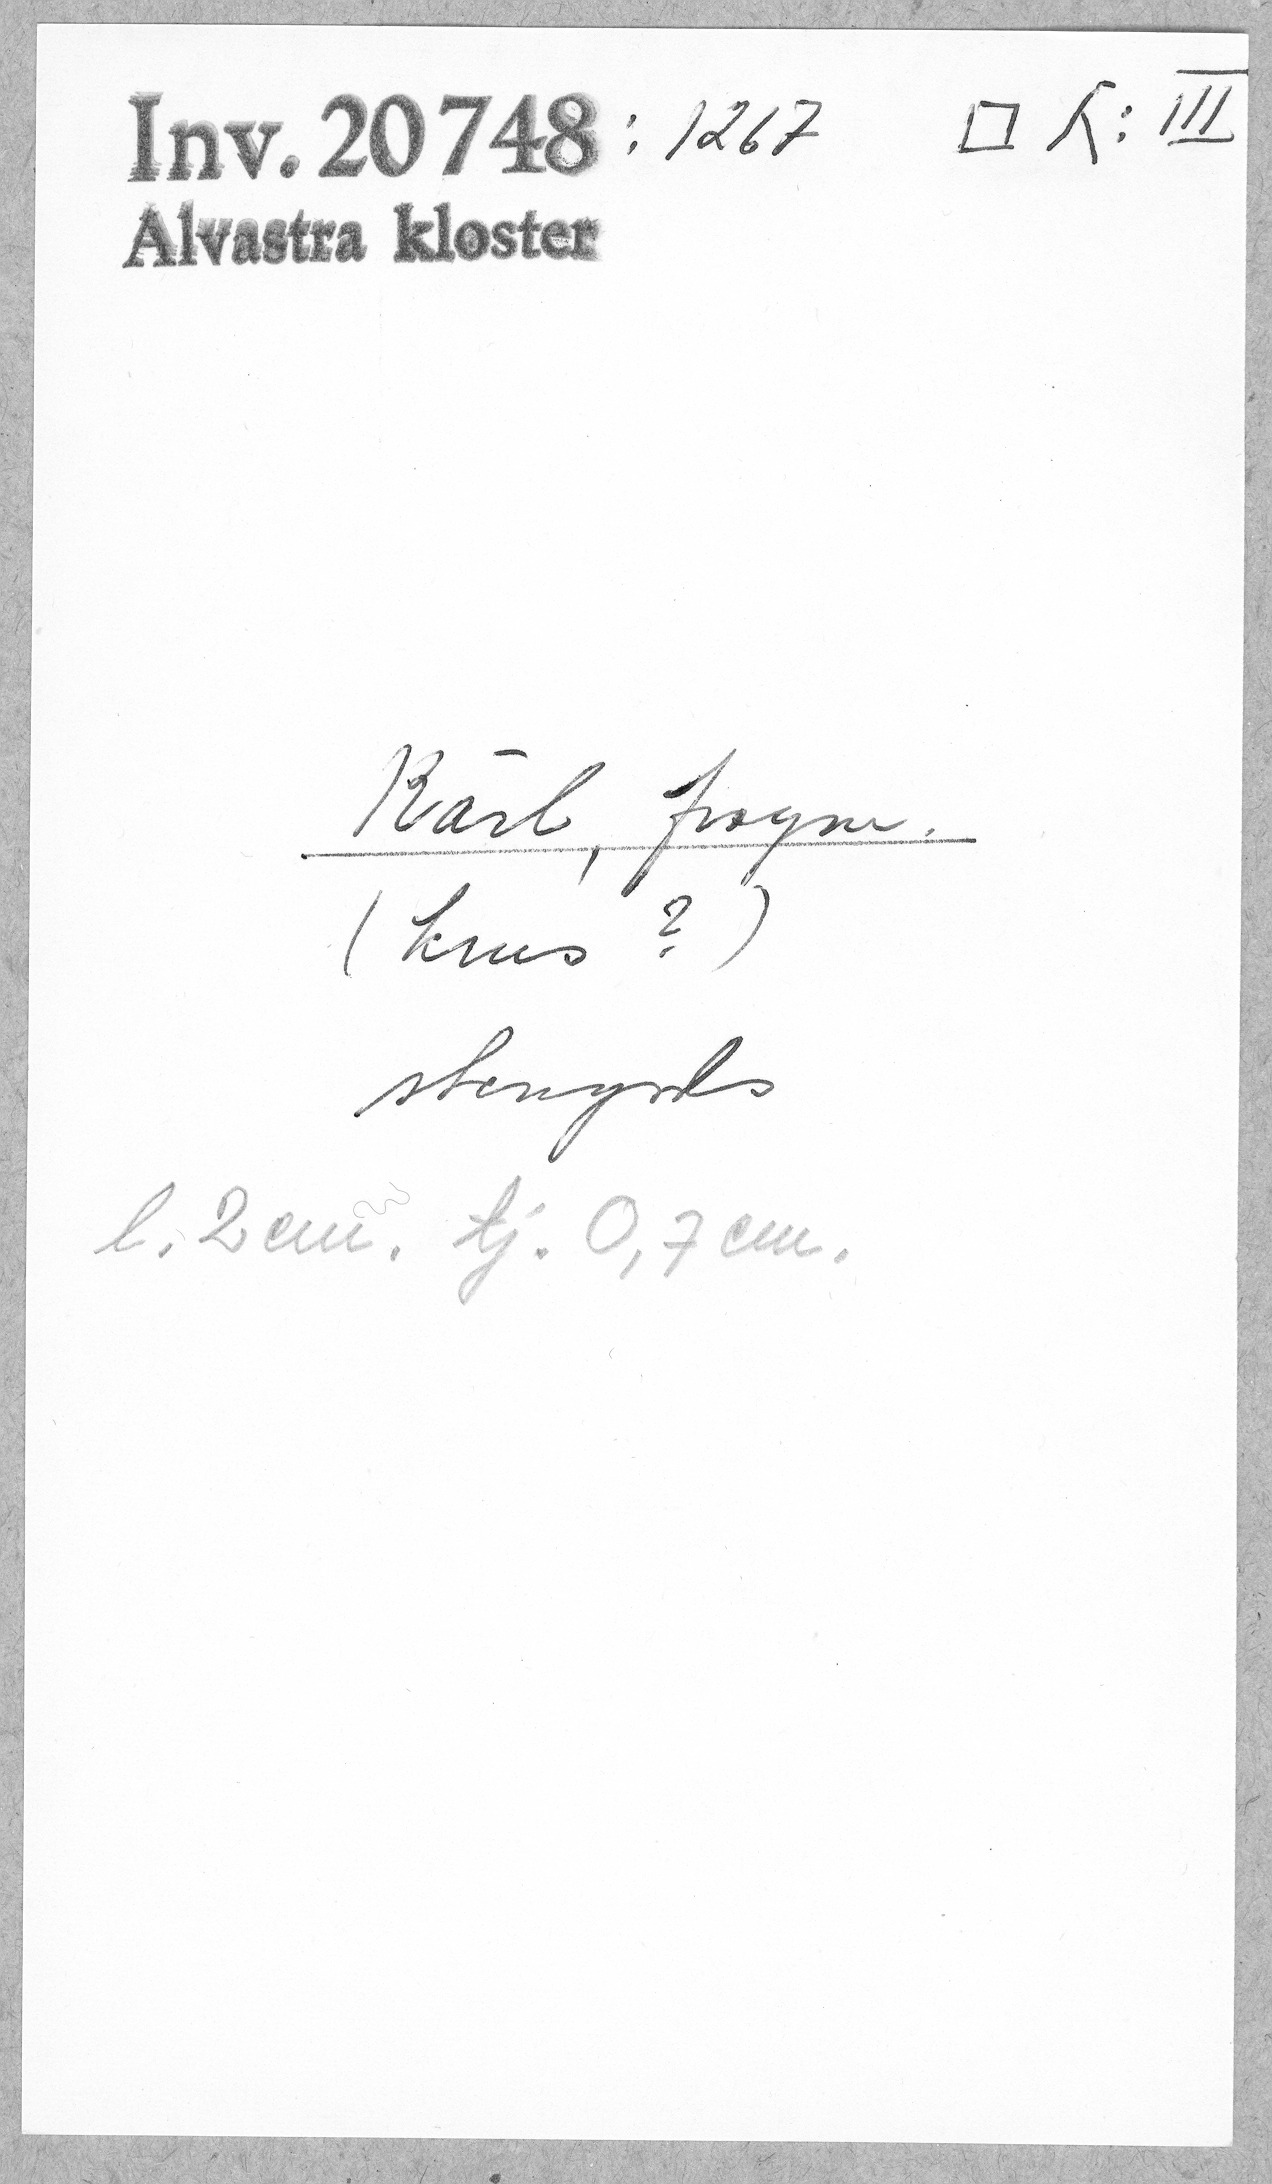 Inv. 20748 : 1267 □ : III
Alvastra kloster
Kärl, fragm.
(krus ?)
stengods
l. 2 cm. tj. 0,7 cm.